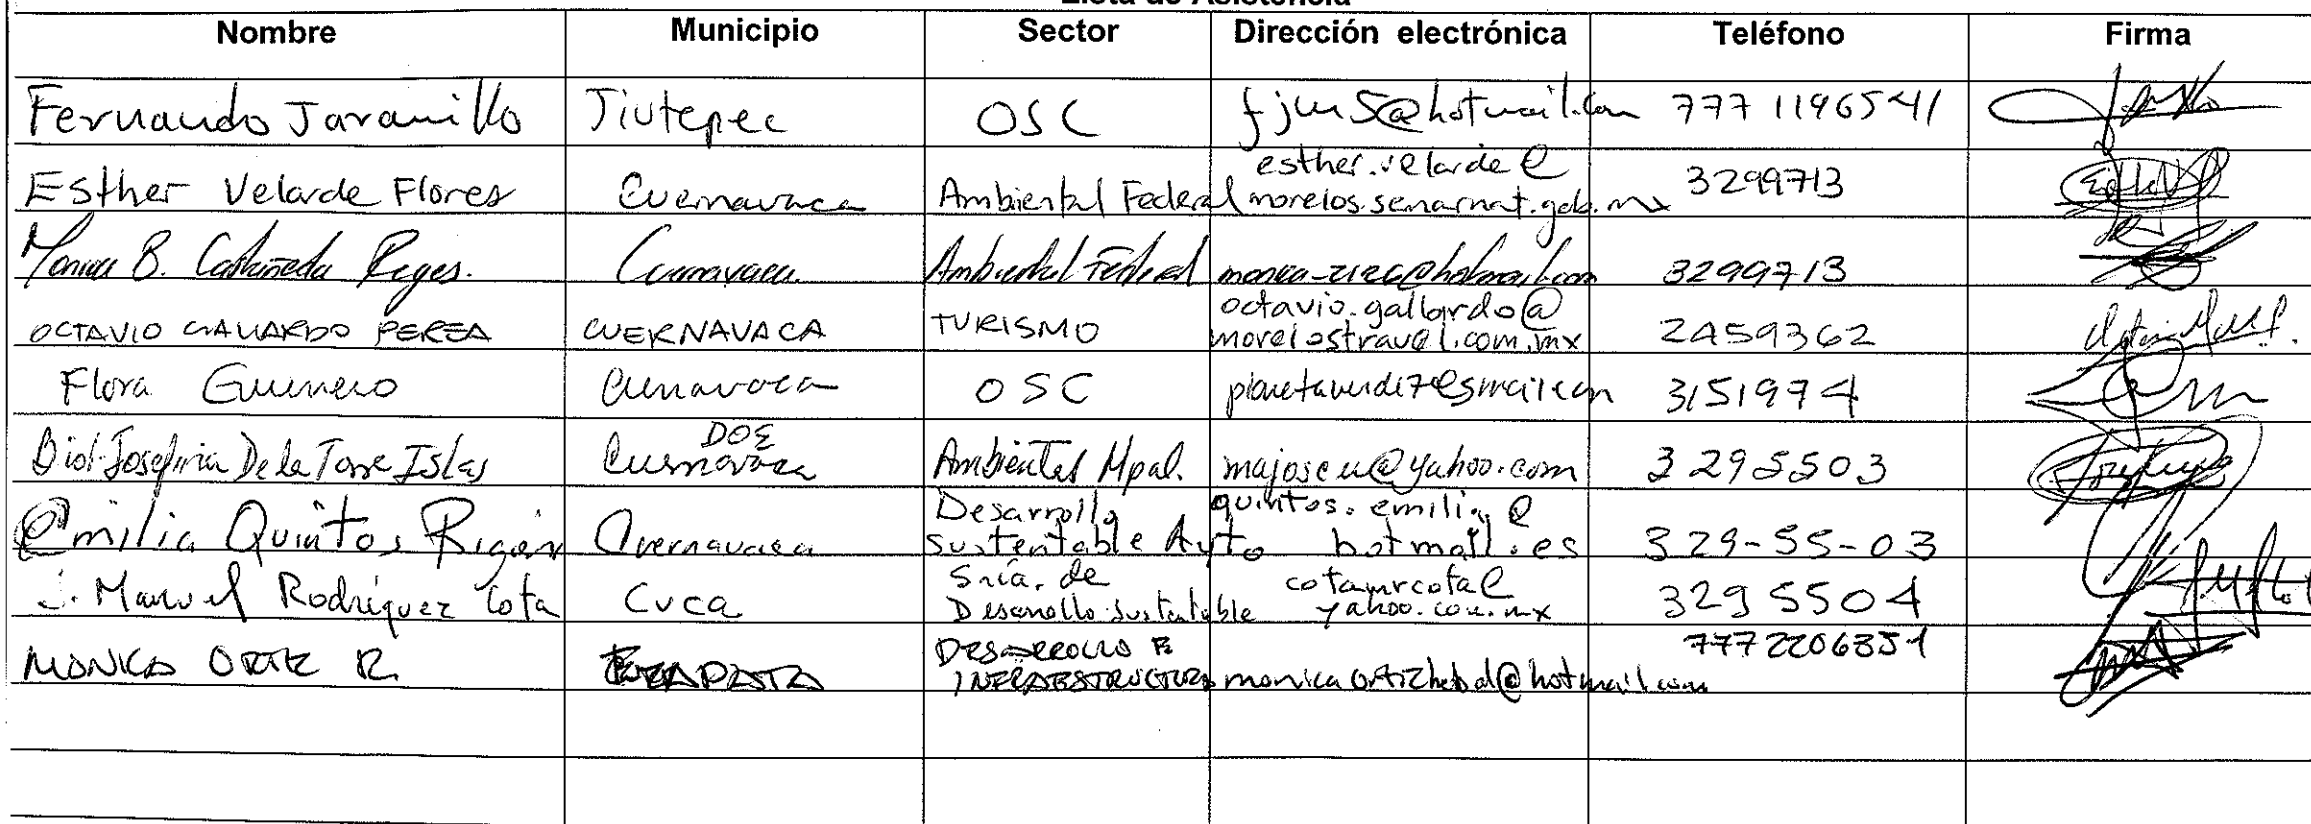 Lista de Asistencia
Nombre Municipio Sector Dirección electrónica Teléfono Firma
Fernando Jaramillo Jiutepec OSC fjm5@hotmail.com 777 1196541
Esther Velarde Flores Cuernavaca Ambiental Federal esther.velarde@
morelos.semarnat.gob.mx 3299713
Monica B. Castañeda Reyes. Cuernavaca Ambiental Federal 3299713
OCTAVIO GALLARDO PEREA CUERNAVACA TURISMO octavio.gallardo@
morelostravel.com.mx 2459362
Flora Guerrero Cuernavaca OSC planetaverde7@gmail.com 3151974
Biol. Josefina De la Torre Islas DOE
Cuernavaca Ambiental Mpal. majoseu@yahoo.com 3295503
Emilia Quintos Cuernavaca Desarrollo
sustentable Ayto quintos.emilia@
hotmail.es 329-55-03
J. Manuel Rodríguez Cota Cuca Sría. de
Desarrollo Sustentable cotamrcota@
yahoo.com.mx 3295504
MONICA ORTIZ R. ZAPATA DESARROLLO E
INFRAESTRUCTURA @hotmail.com 7772206351